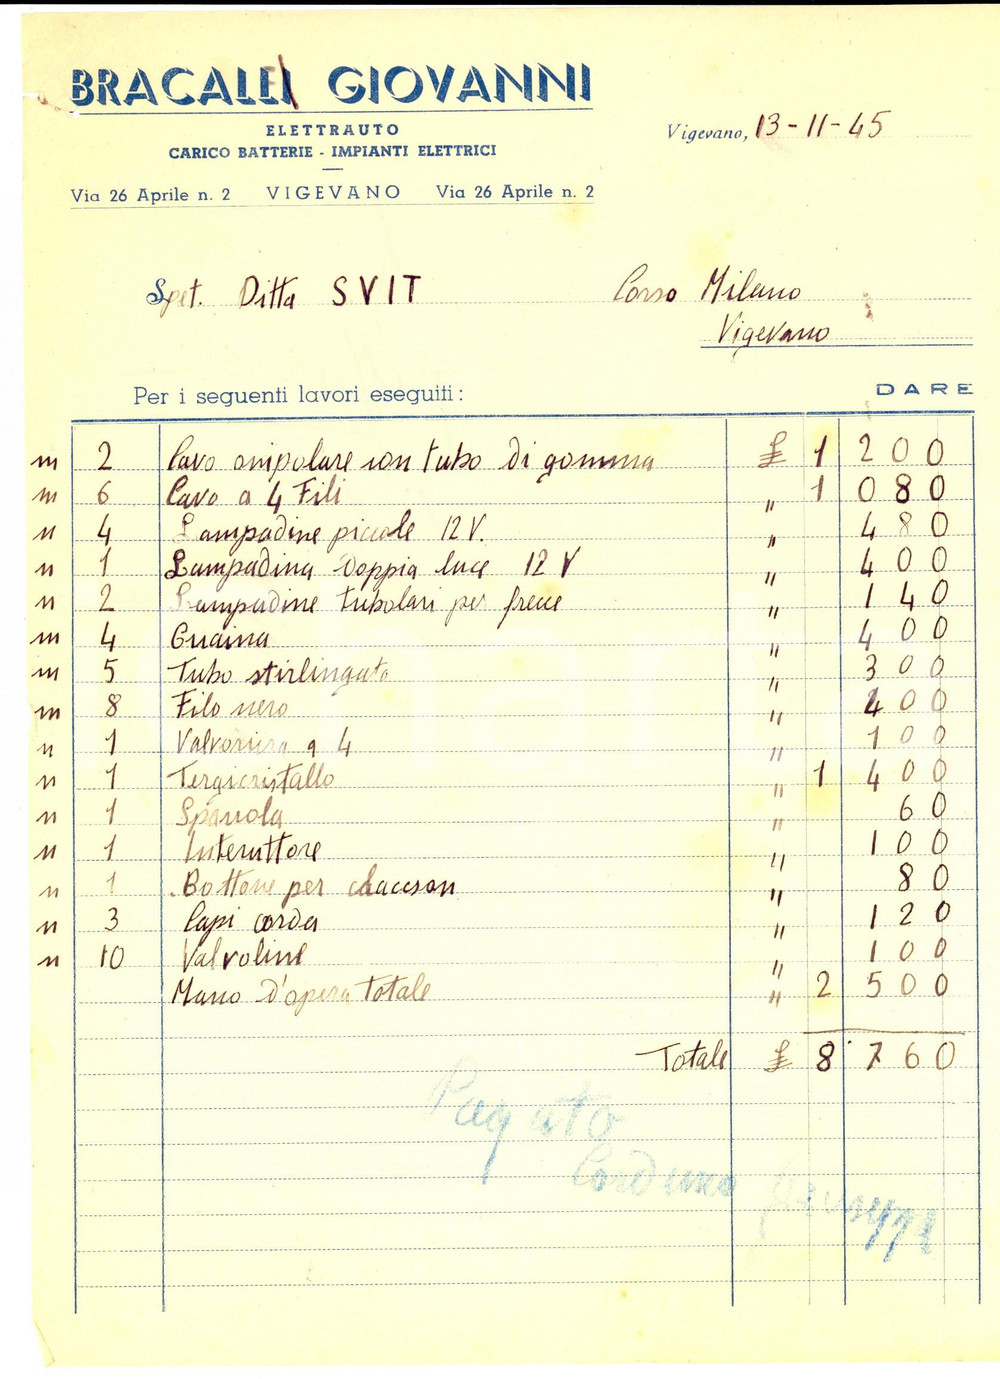 BRACALEI GIOVANNI
ELETTRAUTO
CARICO BATTERIE - IMPIANTI ELETTRICI
Via 26 Aprile n. 2 VIGEVANO Via 26 Aprile n. 2
Vigevano, 13-11-45
Spet. Ditta SVIT Corso Milano
Vigevano
Per i seguenti lavori eseguiti: DARE
m 2 Cavo onipolare con tubo di gomma £ 1 200
m 6 Cavo a 4 Fili " 1 080
n 4 Lampadine piccole 12 V. " 480
n 1 Lampadina Doppia luce 12 V " 400
n 2 Lampadine tubolari per frecce " 140
m 4 Guaina " 400
m 5 Tubo stirlingato " 300
m 8 Filo nero " 400
n 1 Valvoriera a 4 " 100
n 1 Tergicristallo " 1 400
n 1 Spanola " 60
n 1 Interuttore " 100
n 1 Bottone per claccson " 80
n 3 Capi corda " 120
n 10 Valvoline " 100
Mano D'opera Totale " 2 500
Totale £ 8.760
Pagato